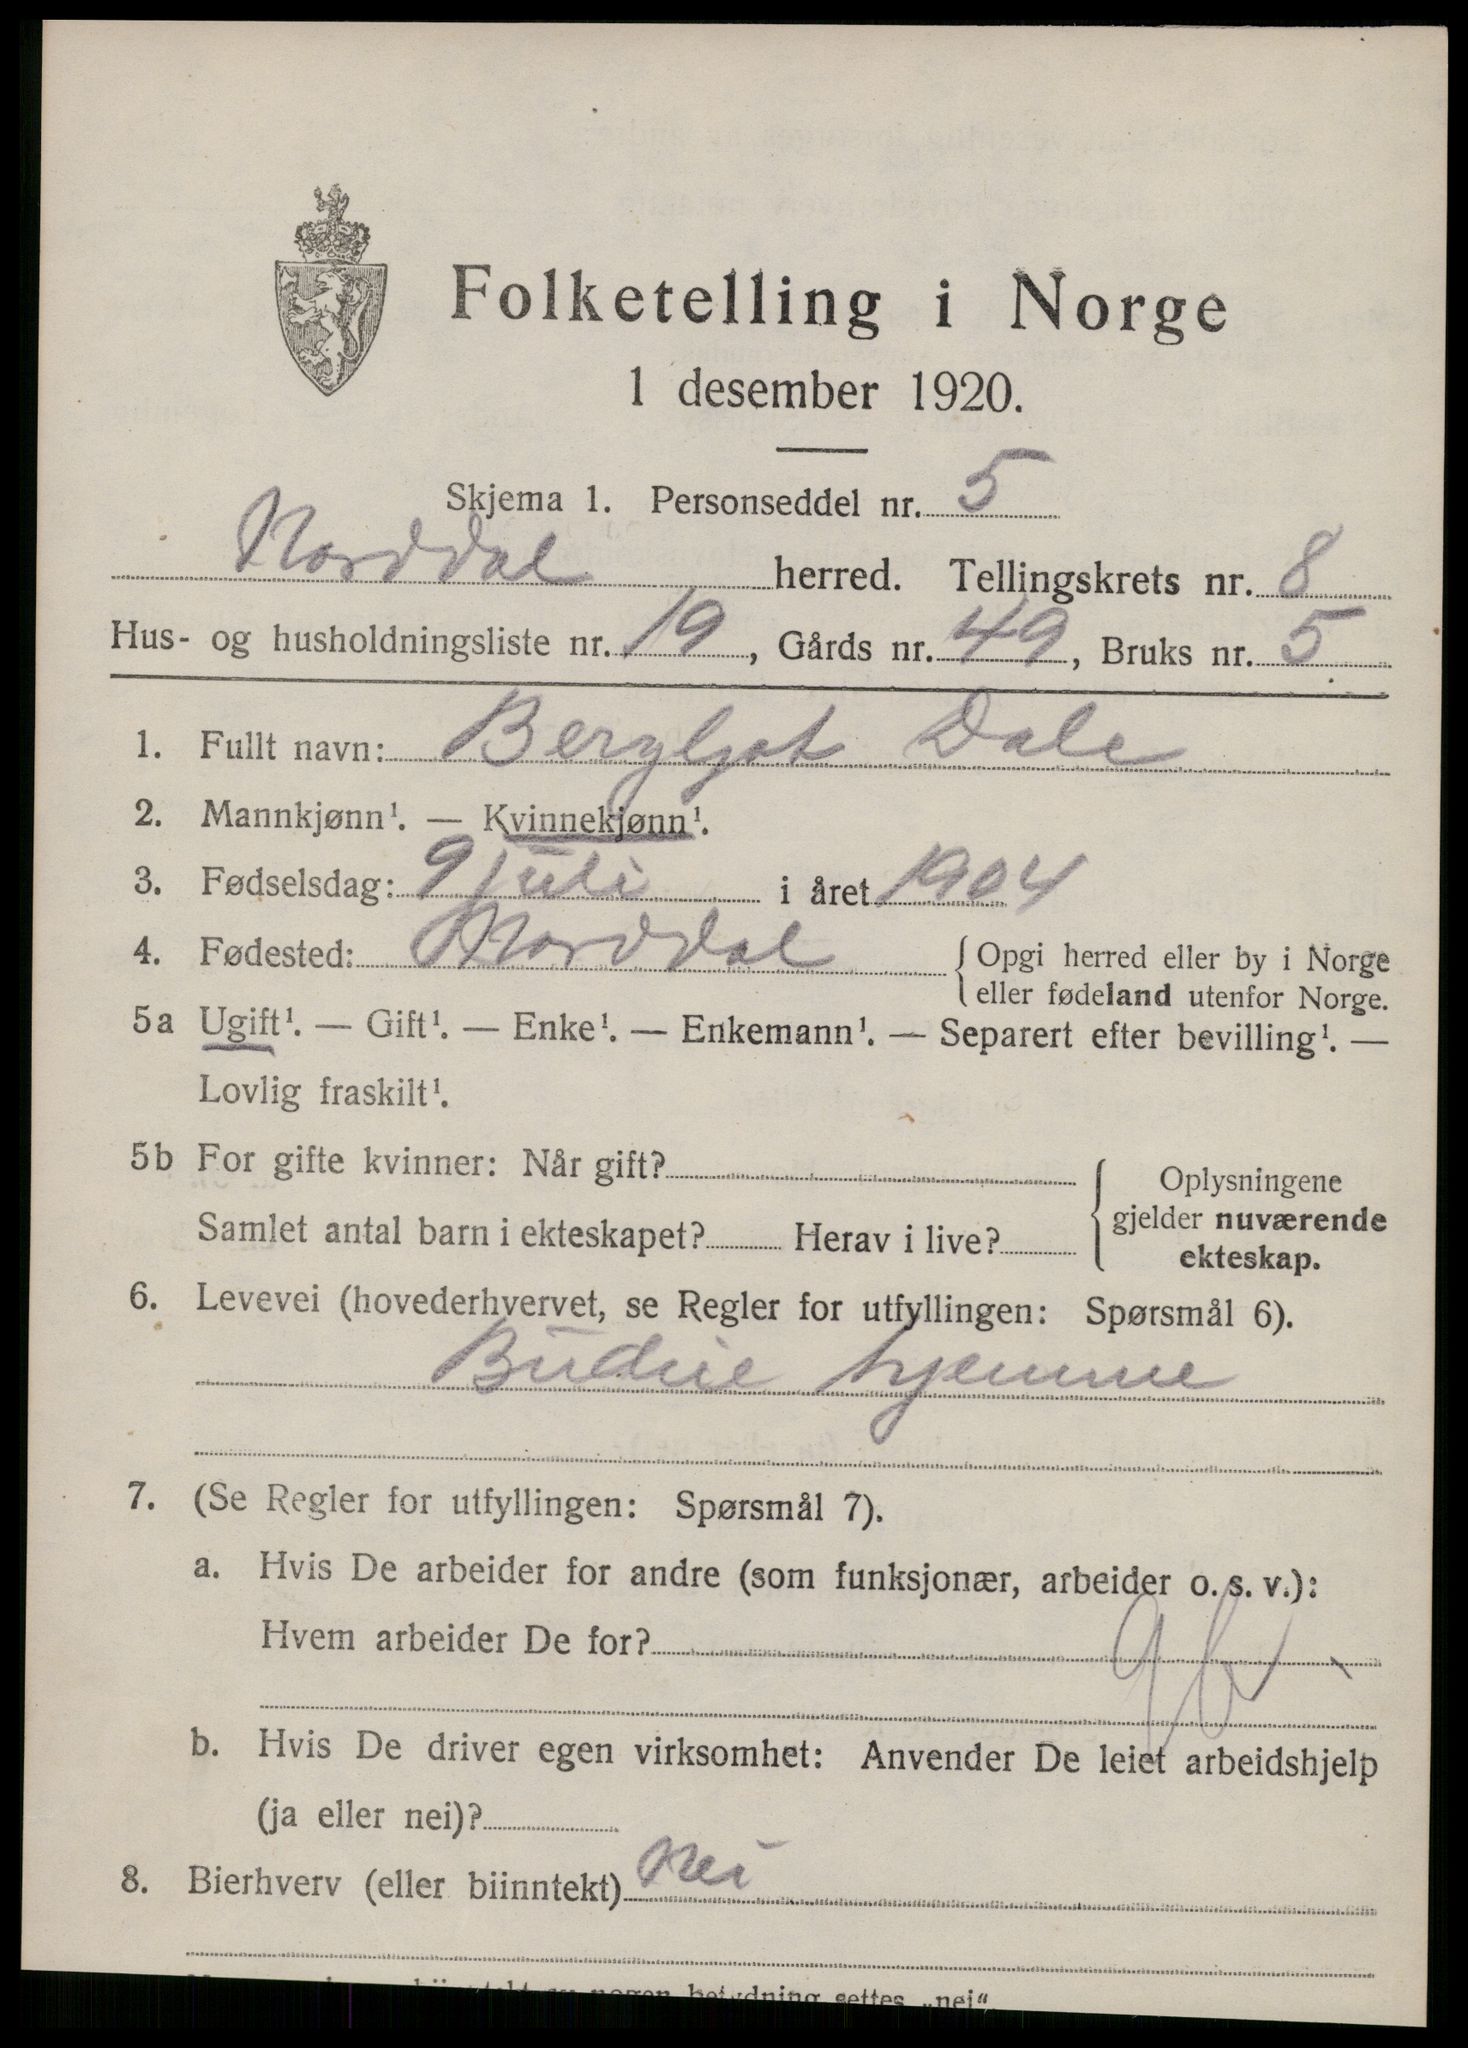 Folketelling i Norge
1 desember 1920.
Skjema 1. Personseddel nr. 5
Norddal herred. Tellingskrets nr. 8
Hus- og husholdningsliste nr. 19, Gårds nr. 49, Bruks nr. 5
1. Fullt navn: Bergljot Dale
2. Mannkjønn¹. — Kvinnekjønn¹.
3. Fødselsdag: 9 juli i året 1904
4. Fødested: Norddal { Opgi herred eller by i Norge
eller fødeland utenfor Norge.
5a Ugift¹. — Gift¹. — Enke¹. — Enkemann¹. — Separert efter bevilling¹. —
Lovlig fraskilt¹.
5b For gifte kvinner: Når gift?
Samlet antal barn i ekteskapet? Herav i live?
{ Oplysningene
gjelder nuværende
ekteskap.
6. Levevei (hovederhvervet, se Regler for utfyllingen: Spørsmål 6).
Budeie hjemme
7. (Se Regler for utfyllingen: Spørsmål 7).
a. Hvis De arbeider for andre (som funksjonær, arbeider o. s. v.):
Hvem arbeider De for?
b. Hvis De driver egen virksomhet: Anvender De leiet arbeidshjelp
(ja eller nei)?
8. Bierhverv (eller biinntekt) Nei
nogen betydning settes „nei“.